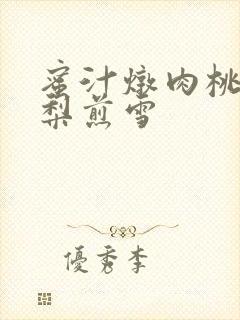 蜜汁燉肉桃
梨煎雪
優秀李